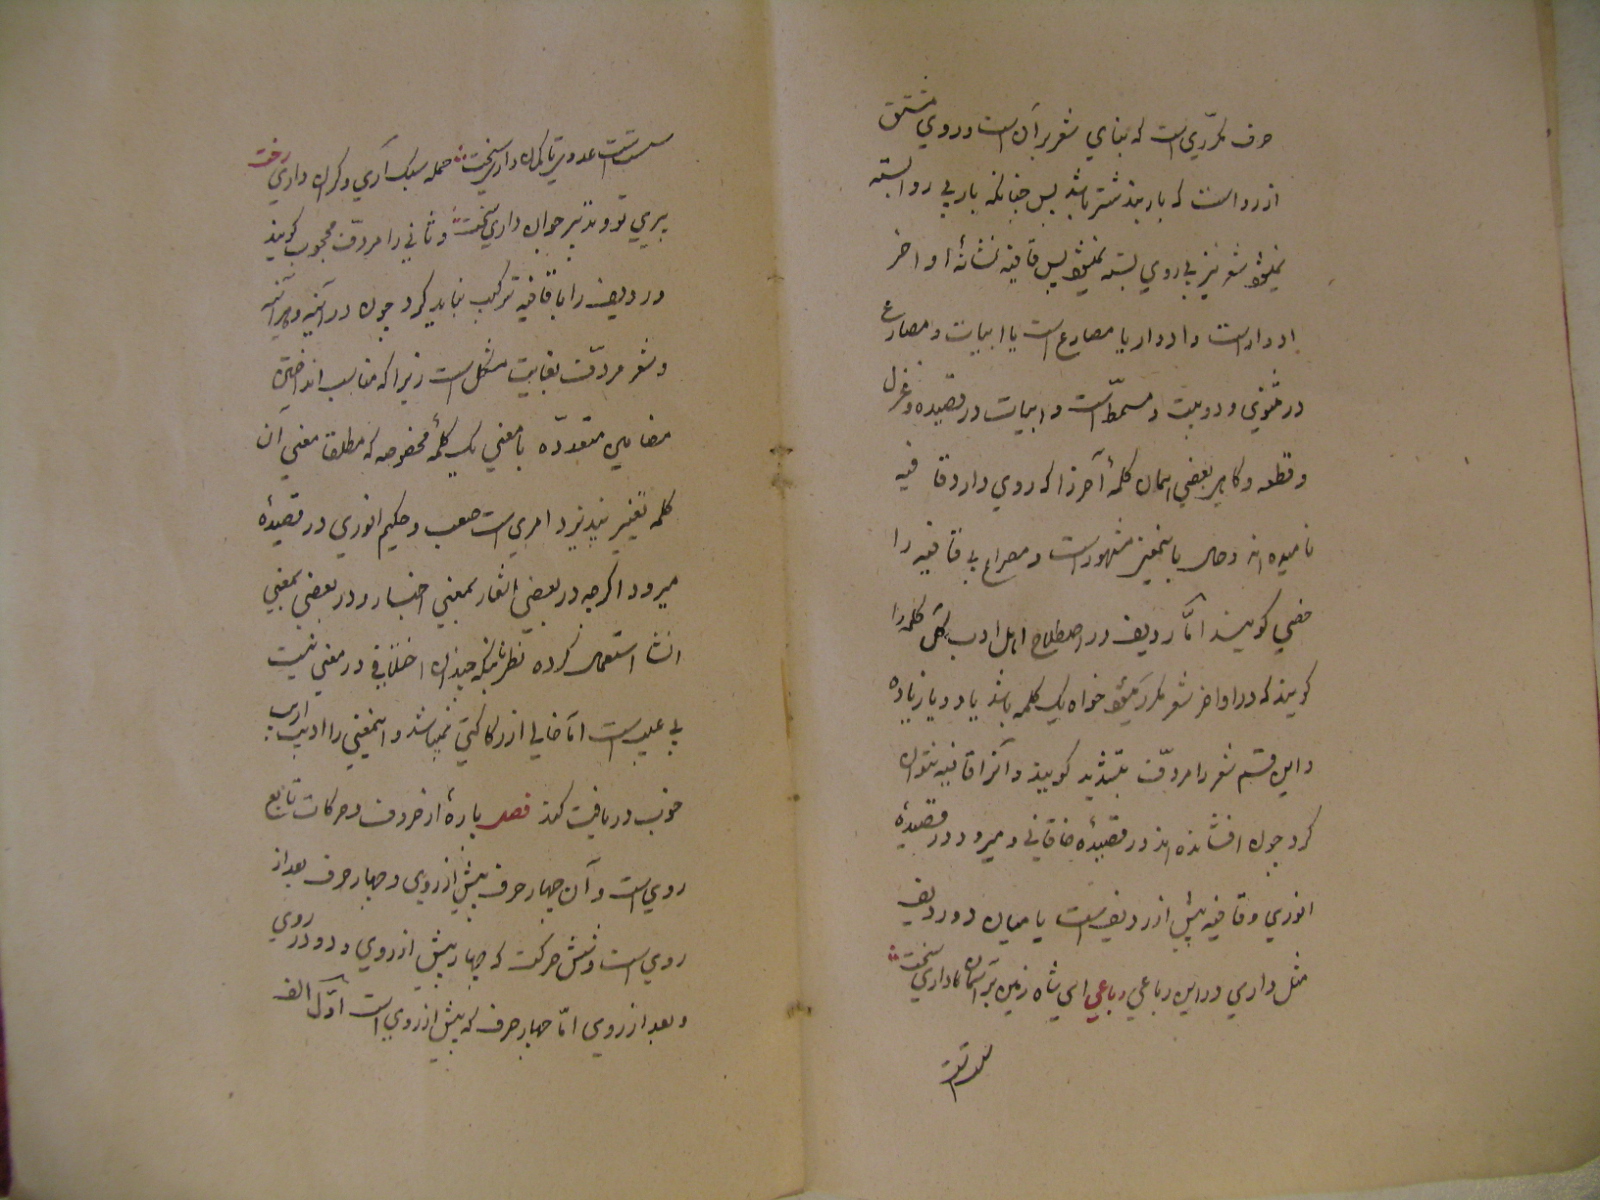 حرف مکرّری است که بنای شعر بر آن است و روی مشتق
از رواست که بار بند شتر باشد پس چنانکه بار بی روا بسته
نمیشود شعر نیز بی روی بسته نمیشود پس قافیه نشانهٔ اواخر
ادوار است و ادوار یا مصارع است یا ابیات و مصارع
در مثنوی و دو بیت و مسمط است و ابیات در قصیده و غزل
و قطعه و گاهی بعضی همان کلمهٔ آخر را که روی دارد قافیه
نامیده اند و حال باینمعنی مشهور است و مصراع بی قافیه را
خصی گویند امّا ردیف در اصطلاح اهل ادب کلمه را
گویند که در اواخر شعر مکرر میشود خواه یک کلمه باشد یا دو یا زیاده
و این قسم شعر را مردّف بتشدید گویند و آنرا قافیه نتوان
کرد چون افشانده اند در قصیدهٔ خاقانی و میرود در قصیدهٔ
انوری و قافیه پیش از ردیف است یا میان دو ردیف
مثل داری در این رباعی رباعی ای شاه زمین بر آسمان داری تخت
سست است
سست است عدو تا تو کمان داری سخت حمله سبک آری و گران داری رخت
پیری تو و تدبیر جوان داری بخت و ثانی را مردّف محجوب گویند
و ردیف را با قافیه ترکیب نباید کرد چون در آئینه و هرآئینه
و شعر مردّف بغایت مشکل است زیرا که مناسب انداختن
مضامین متعدّده با معنی یک کلمهٔ مخصوصه که مطلقا معنی آن
کلمه تغییر نپذیرد امری است صعب و حکیم انوری در قصیدهٔ
میرود اگرچه در بعضی اشعار بمعنی اخبار و در بعضی بمعنی
انشا استعمال کرده نظر باینکه چندان اختلافی در معنی نیست
بی عیب است امّا خالی از رکاکتی نمیباشد و اینمعنی را ادیب اریب
خوب دریافت کند فصل پارهٔ از حروف و حرکات تابع
روی است و آن چهار حرف پیش از روی و چهار حرف بعد از
روی است و شش حرکت که چهار پیش از روی و دو در روی
و بعد از روی امّا چهار حرف که پیش از روی است اوّل الف